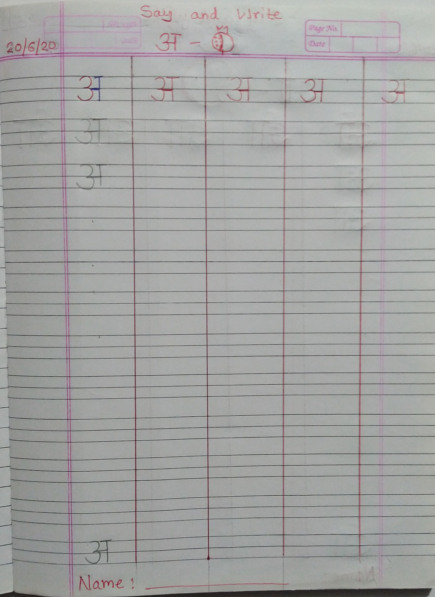 Say and Write
20/6/20 अ -
Page No
Date
अ अ अ अ अ
अ
अ
अ
Name :